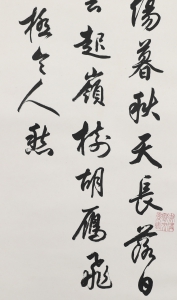 陽暮秋天長落日
雲起嶺樹胡鴈飛
極令人愁